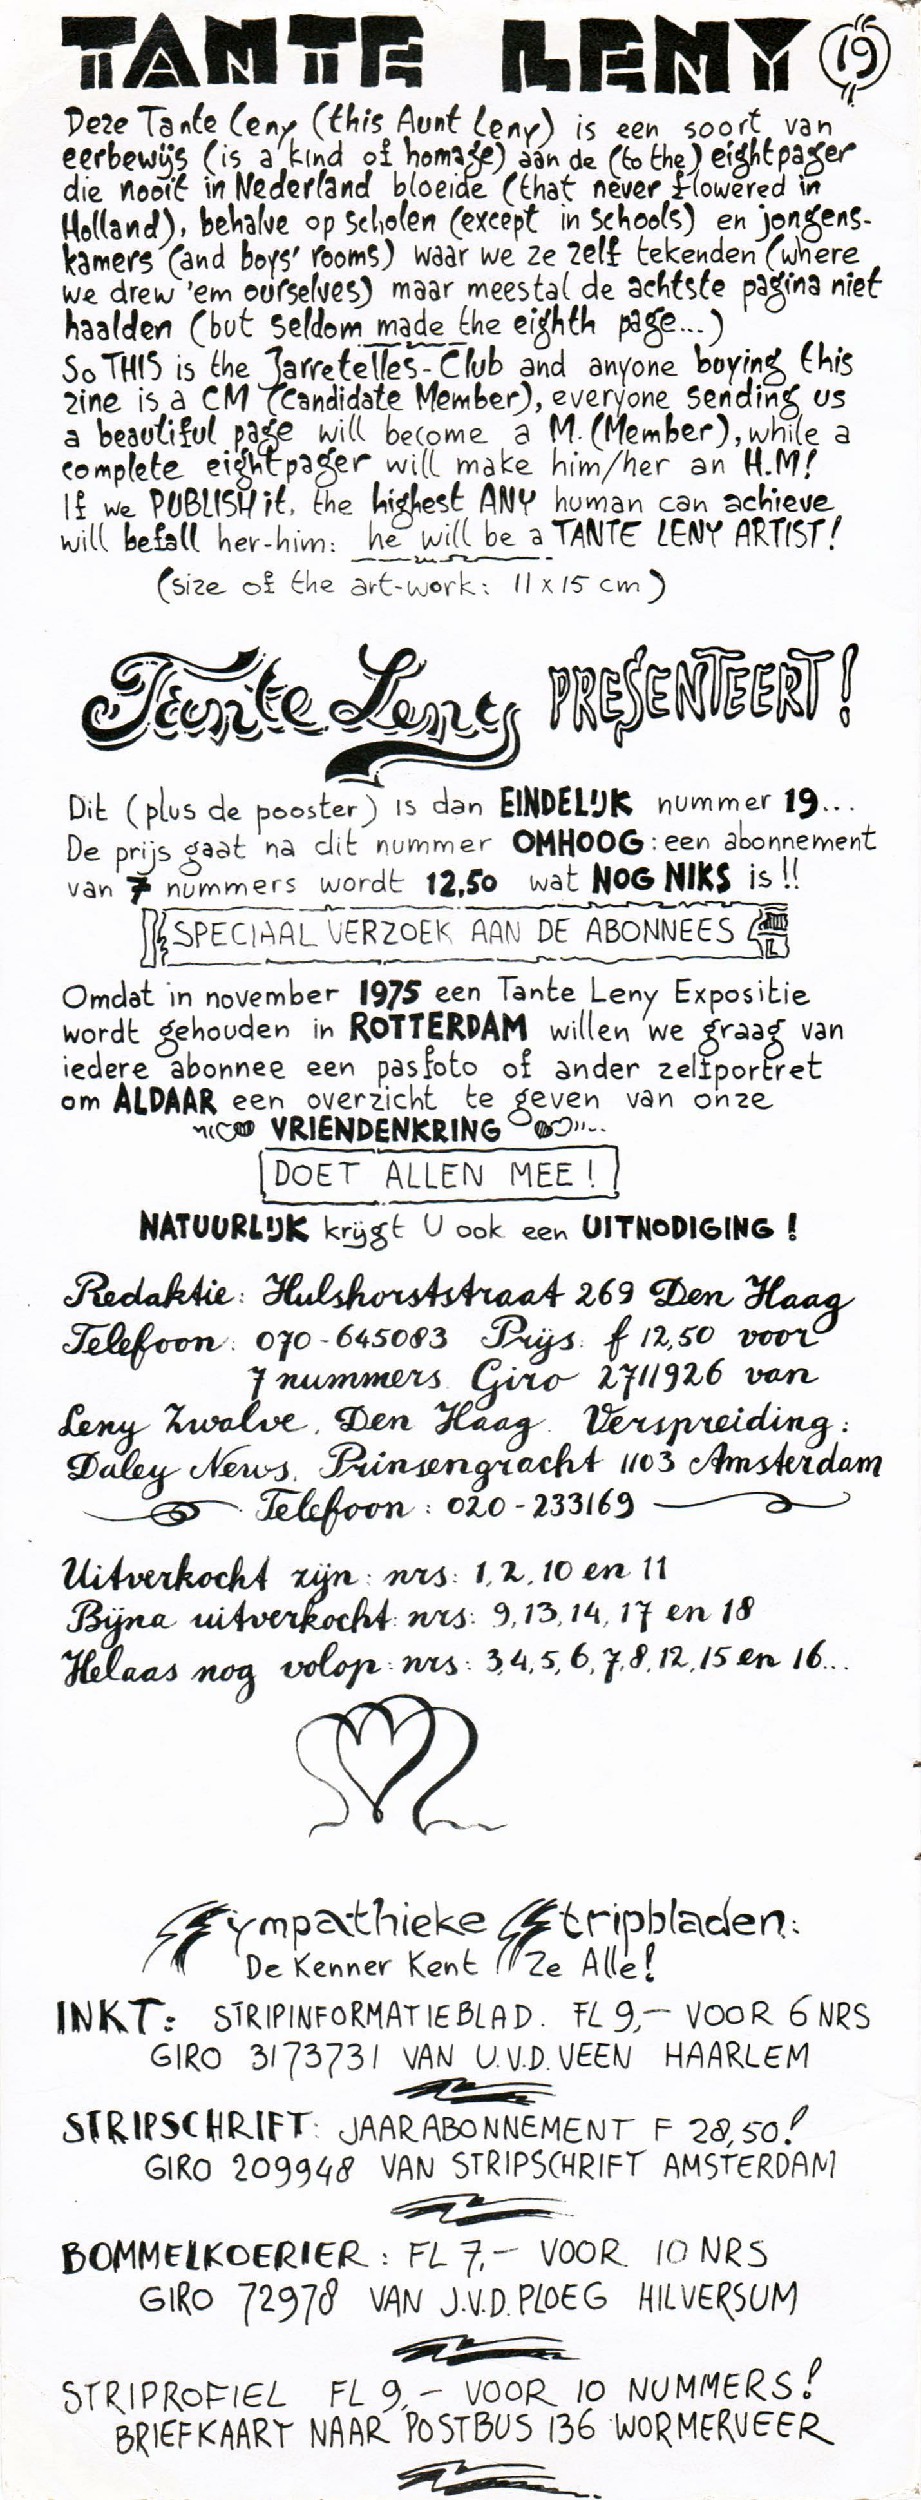 TANTE LENY 19
Deze Tante Leny (this Aunt Leny) is een soort van
eerbewijs (is a kind of homage) aan de (to the) eightpager
die nooit in Nederland bloeide (that never flowered in
Holland), behalve op scholen (except in schools) en jongens-
kamers (and boys' rooms) waar we ze zelf tekenden (where
we drew 'em ourselves) maar meestal de achtste pagina niet
haalden (but seldom made the eighth page...)
So THIS is the Jarretelles-Club and anyone buying this
zine is a CM (Candidate Member), everyone sending us
a beautiful page will become a M. (Member), while a
complete eightpager will make him/her an H.M!
If we PUBLISH it, the highest ANY human can achieve
will befall her-him: he will be a TANTE LENY ARTIST!
(size of the art-work: 11 x 15 cm)
Tante Leny PRESENTEERT!
Dit (plus de pooster) is dan EINDELIJK nummer 19...
De prijs gaat na dit nummer OMHOOG: een abonnement
van 7 nummers wordt 12,50 wat NOG NIKS is!!
SPECIAAL VERZOEK AAN DE ABONNEES
Omdat in november 1975 een Tante Leny Expositie
wordt gehouden in ROTTERDAM willen we graag van
iedere abonnee een pasfoto of ander zelfportret
om ALDAAR een overzicht te geven van onze
VRIENDENKRING
DOET ALLEN MEE!
NATUURLIJK krijgt U ook een UITNODIGING!
Redaktie: Hulshorststraat 269 Den Haag
Telefoon: 070-645083 Prijs: f 12,50 voor
7 nummers. Giro 2711926 van
Leny Zwalve, Den Haag. Verspreiding:
Daley News, Prinsengracht 1103 Amsterdam
Telefoon: 020-233169
Uitverkocht zijn: nrs: 1, 2, 10 en 11
Bijna uitverkocht: nrs: 9, 13, 14, 17 en 18
Helaas nog volop: nrs: 3, 4, 5, 6, 7, 8, 12, 15 en 16...
Sympathieke Stripbladen:
De Kenner Kent Ze Alle!
INKT: STRIPINFORMATIEBLAD. FL 9,- VOOR 6 NRS
GIRO 3173731 VAN U.V.D. VEEN HAARLEM
STRIPSCHRIFT: JAARABONNEMENT F 28,50!
GIRO 209948 VAN STRIPSCHRIFT AMSTERDAM
BOMMELKOERIER: FL 7,- VOOR 10 NRS
GIRO 72978 VAN J.V.D. PLOEG HILVERSUM
STRIPROFIEL FL 9,- VOOR 10 NUMMERS!
BRIEFKAART NAAR POSTBUS 136 WORMERVEER